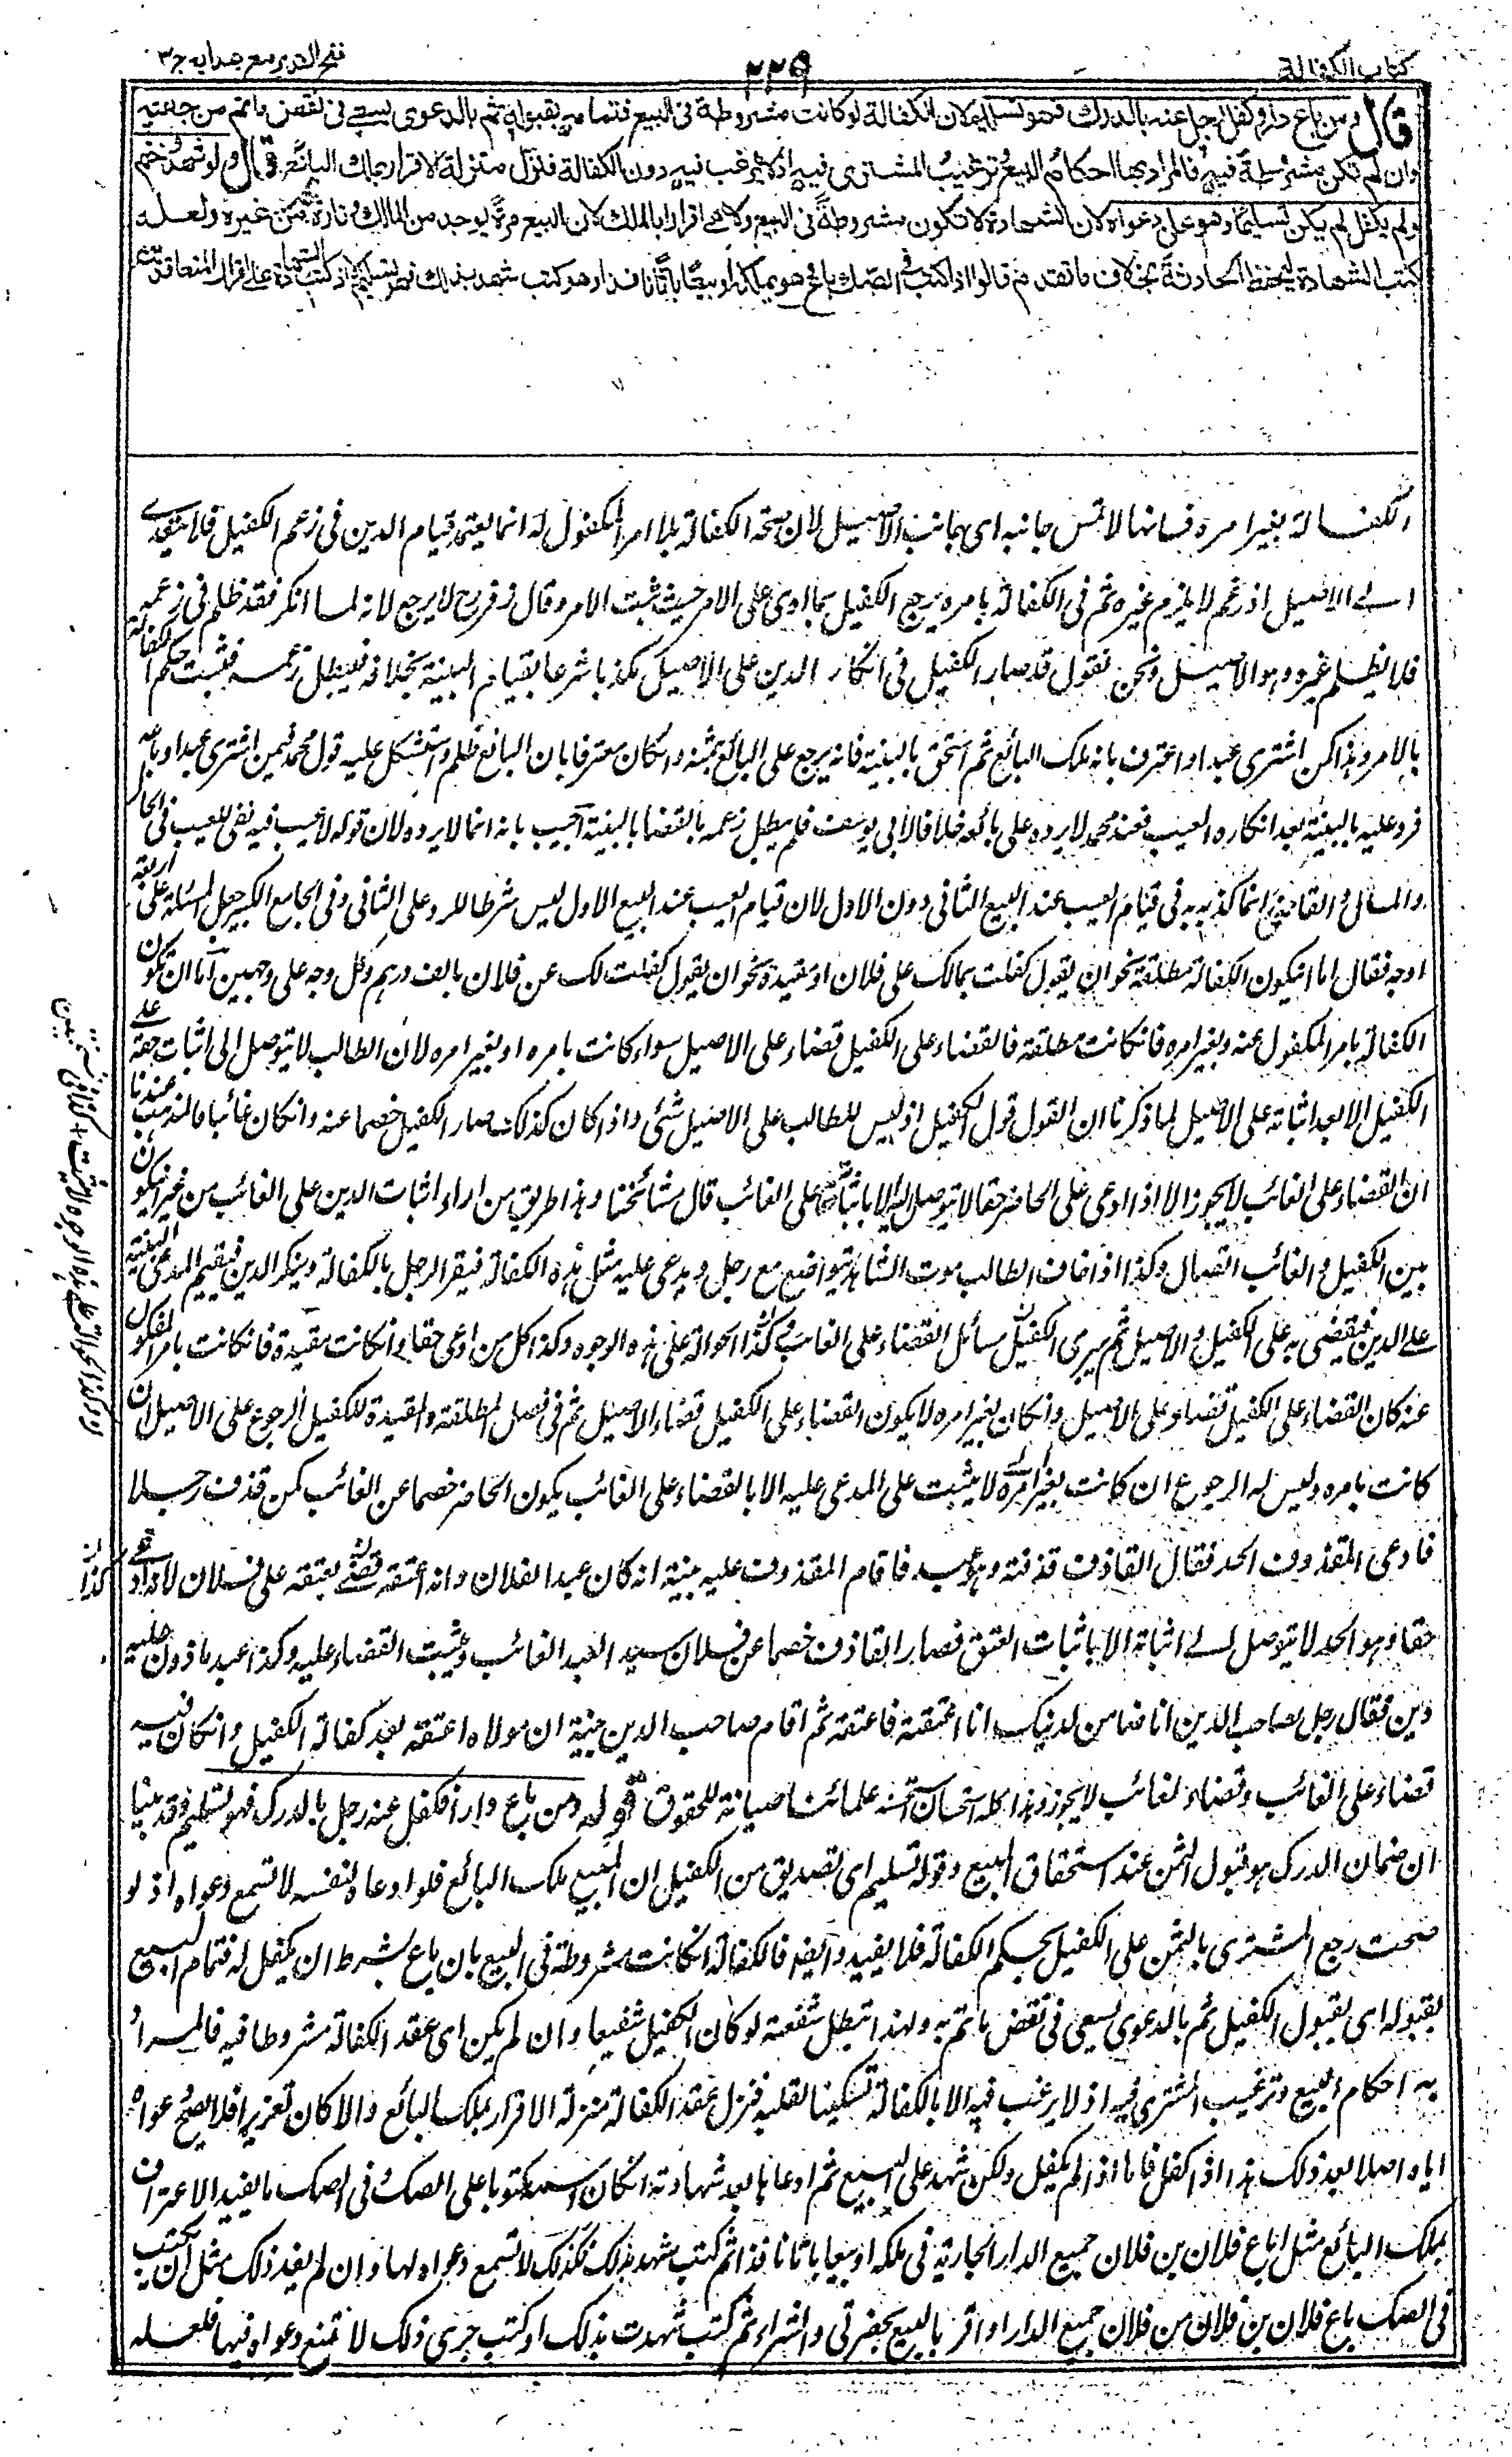 كتاب الكفالة
٢٢٩
فتح القدير مع هدايه ج٣
قال ومن باع دارا وكفل رجل عنه بالدرك فهو تسليم لان الكفالة لو كانت مشروطة فى البيع فتمامه بقبوله ثم بالدعوى يسعى فى نقض ما تم من جهته
وان لم تكن مشروطة فيه فالمراد بها احكام البيع وترغيب المشترى فيه اذ لا يرغب فيه دون الكفالة فنزل منزلة الاقرار بملك البائع قال ولو شهد وختم
ولم يكفل لم يكن تسليما وهو على دعواه لان الشهادة لا تكون مشروطة فى البيع ولا هى اقرار بالملك لان البيع مرة يوجد من المالك وتارة من غيره ولعله
كتب الشهادة ليحفظ الحادثة بخلاف ما تقدم قالوا اذا كتب فى الصك باع وهو يملكه او بيعا باتا نافذا وهو كتب شهد بذلك فهو تسليم الا اذا كتب الشهادة على اقرار المتعاقدين
الكفالة بغير امره فانها لا تمس جانبه اى جانب الاصيل لان صحة الكفالة بلا امر المكفول له انما يعتمد قيام الدين فى زعم الكفيل فلا يتعدى
الى الاصيل اذ زعمه لا يلزم غيره ثم فى الكفالة بامره يرجع الكفيل بما ادى على الامر حيث ثبت الامر وقال زفر رح لا يرجع لانه لما انكر فقد ظلم فى زعمه
فلا يظلم غيره وهو الاصيل ونحن نقول قد صار الكفيل فى انكار الدين على الاصيل مكذبا شرعا بقيام البينة بخلافه فيبطل زعمه فيثبت حكم الكفالة
بالامر وهذا كمن اشترى عبدا واعترف بانه ملك البائع ثم استحق بالبينة فانه يرجع على البائع بثمنه وان كان معترفا بان البائع ظلم واستشكل عليه قول محمد فيمن اشترى عبدا وباعه
فرد عليه بالبينة بعد انكاره العيب فعند محمد لا يرده على بائعه خلافا لابى يوسف فلم يبطل زعمه بالقضاء بالبينة اجيب بانه انما لا يرده لان قوله لا عيب فيه نفى للعيب فى الحال
والماضى والقاضى انما كذبه به فى قيام العيب عند البيع الثانى دون الاول لان قيام العيب عند البيع الاول ليس شرطا للرد على الثانى وفى الجامع الكبير جعل المسئلة على اربعة
اوجه فقال اما ان يكون الكفالة مطلقة نحو ان يقول كفلت بمالك على فلان او مقيدة نحو ان يقول كفلت لك عن فلان بالف درهم وكل وجه على وجهين اما ان تكون
الكفالة بامر المكفول عنه وبغير امره فان كانت مطلقة فالقضاء على الكفيل قضاء على الاصيل سواء كانت بامره او بغير امره لان الطالب لا يتوصل الى اثبات حقه على
الكفيل الا بعد اثباته على الاصيل لما ذكرنا ان القول قول الكفيل اذ ليس للطالب على الاصيل شئ واذا كان كذلك صار الكفيل خصما عنه وان كان غائبا فالمذهب عندنا
ان القضاء على الغائب لا يجوز الا اذا ادعى على الحاضر حقا لا يتوصل اليه الا باثباته على الغائب قال مشائخنا وهذا طريق من اراد اثبات الدين على الغائب من غير ان يكون
بين الكفيل والغائب اتصال وكذا اذا خاف الطالب موت الشاهد يتواضع مع رجل ويدعى عليه مثل هذه الكفالة فيقر الرجل بالكفالة وينكر الدين فيقيم المدعى البينة
على الدين فيقضى به على الكفيل والاصيل ثم يبرئ الكفيل مسائل القضاء على الغائب كذا الحوالة على هذه الوجوه وكذا كل من ادعى حقا وان كانت مقيدة فان كانت بامر المكفول
عنه كان القضاء على الكفيل قضاء على الاصيل وان كان بغير امره لا يكون القضاء على الكفيل قضاء الاصيل ثم فى فصل المطلقة والمقيدة للكفيل الرجوع على الاصيل ان
كانت بامره وليس له الرجوع ان كانت بغير امره لا يثبت على المدعى عليه الا بالقضاء على الغائب يكون الحاضر خصما عن الغائب كمن قذف رجلا
فادعى المقذوف الحد فقال القاذف قذفته وهو عبد فاقام المقذوف عليه بينة انه كان عبدا لفلان وانه اعتقه قضى بعتقه على فلان لانه ادعى
حقا وهو الحد لا يتوصل الى اثباته الا باثبات العتق فصار القاذف خصما عن فلان سيد العبد الغائب ويثبت القضاء عليه وكذا عبد ماذون عليه
دين فقال رجل لصاحب الدين انا ضامن لدينك ان اعتقه فاعتقه ثم اقام صاحب الدين بينة ان مولاه اعتقه بعد كفالة الكفيل وان كان فيه
قضاء على الغائب وقضاء لغائب لا يجوز وهذا كله استحسان استحسنه علمائنا صيانة للحقوق قوله ومن باع دارا فكفل عنه رجل بالدرك فهو تسليم قد بينا
ان ضمان الدرك هو قبول الثمن عند استحقاق المبيع وقوله تسليم اى تصديق من الكفيل ان المبيع ملك البائع فلو ادعاه لنفسه لا تسمع دعواه اذ لو
صحت رجع المشترى بالثمن على الكفيل بحكم الكفالة فلا يفيد وايضا فالكفالة ان كانت مشروطة فى البيع بان باع بشرط ان يكفل له فتمام البيع
بقبوله اى بقبول الكفيل ثم بالدعوى يسعى فى نقض ما تم به ولهذا تبطل شفعته لو كان الكفيل شفيعا وان لم يكن اى عقد الكفالة مشروطا فيه فالمراد
به احكام البيع وترغيب المشترى فيه اذ لا يرغب فيه الا بالكفالة تسكينا لقلبه فنزل عقد الكفالة منزلة الاقرار بملك البائع والا كان تعزيرا فلا تصح دعواه
اياه اصلا بعد ذلك هذا اذا كفل فاما اذا لم يكفل ولكن شهد على البيع ثم ادعاها بعد شهادته ان كان اسمه مكتوبا على الصك وفى الصك ما يفيد الاعتراف
بملك البائع مثل باع فلان بن فلان جميع الدار الجارية فى ملكه او بيعا باتا نافذا ثم كتب شهد بذلك فكذلك لا تسمع دعواه لها وان لم يفد ذلك مثل ان يكتب
فى الصك باع فلان بن فلان من فلان جميع الدار او اقر بالبيع بحضرتى والشراء ثم كتب شهدت بذلك او كتب جرى ذلك لا تمنع دعواه فيها فلعله